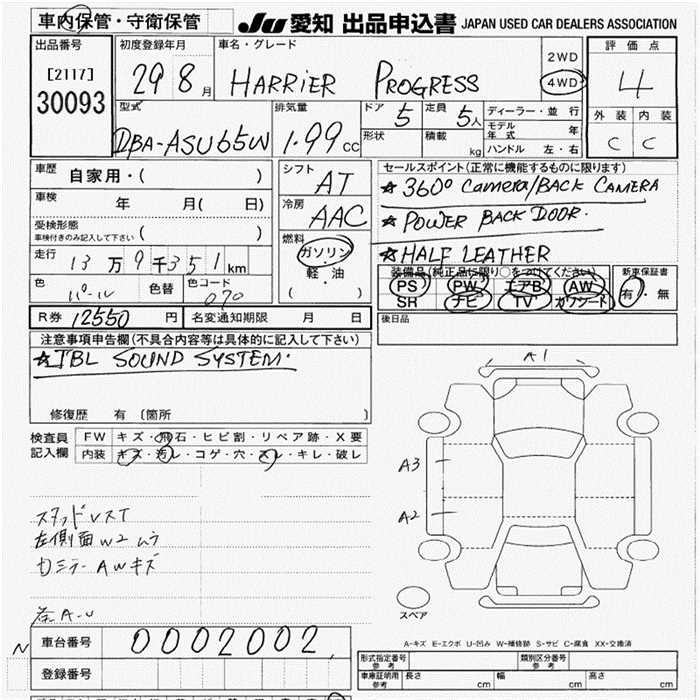 車内保管・守衛保管
JU 愛知 出品申込書 JAPAN USED CAR DEALERS ASSOCIATION
出品番号
[2117]
30093
初度登録年月
29 8月
車名・グレード
HARRIER PROGRESS
2WD
4WD
評価点
4
外装 内装
C C
型式
DBA-ASU65W
排気量
1.99cc
ドア 5
定員 5人
形状
積載 kg
ディーラー・並行
モデル年式 年
ハンドル 左・右
車歴 自家用・( )
車検 年 月( 日)
受検形態
車検付きのみ記入して下さい ( )
走行 13万9千351km
色 パール
色替
色コード 070
シフト AT
冷房 AAC
燃料
ガソリン
軽・油
( )
セールスポイント(正常に機能するものに限ります)
★360° Camera/BACK CAMERA
★POWER BACK DOOR.
★HALF LEATHER
装備品(純正品に限り○をつけてください)
PS PW エアB AW
SR ナビ TV カワシート
新車保証書
有・無
R券 12550円
名変通知期限 月 日
後日品
注意事項申告欄(不具合内容等は具体的に記入して下さい)
★JBL SOUND SYSTEM.
修復歴 有 〔箇所 〕
検査員記入欄
FW キズ・飛石・ヒビ割・リペア跡・X要
内装 キズ・汚レ・コゲ・穴・スレ・キレ・破レ
スタッドレスT
左側面W2ムラ
ミラー AWキズ
A-U
A1
A3
A2
スペア
車台番号 0002002
登録番号
A-キズ E-エクボ U-凹み W-補修跡 S-サビ C-腐食 XX-交換済
形式指定番号 参考
類別区分番号 参考
車庫証明用 参考
長さ cm 幅 cm 高さ cm